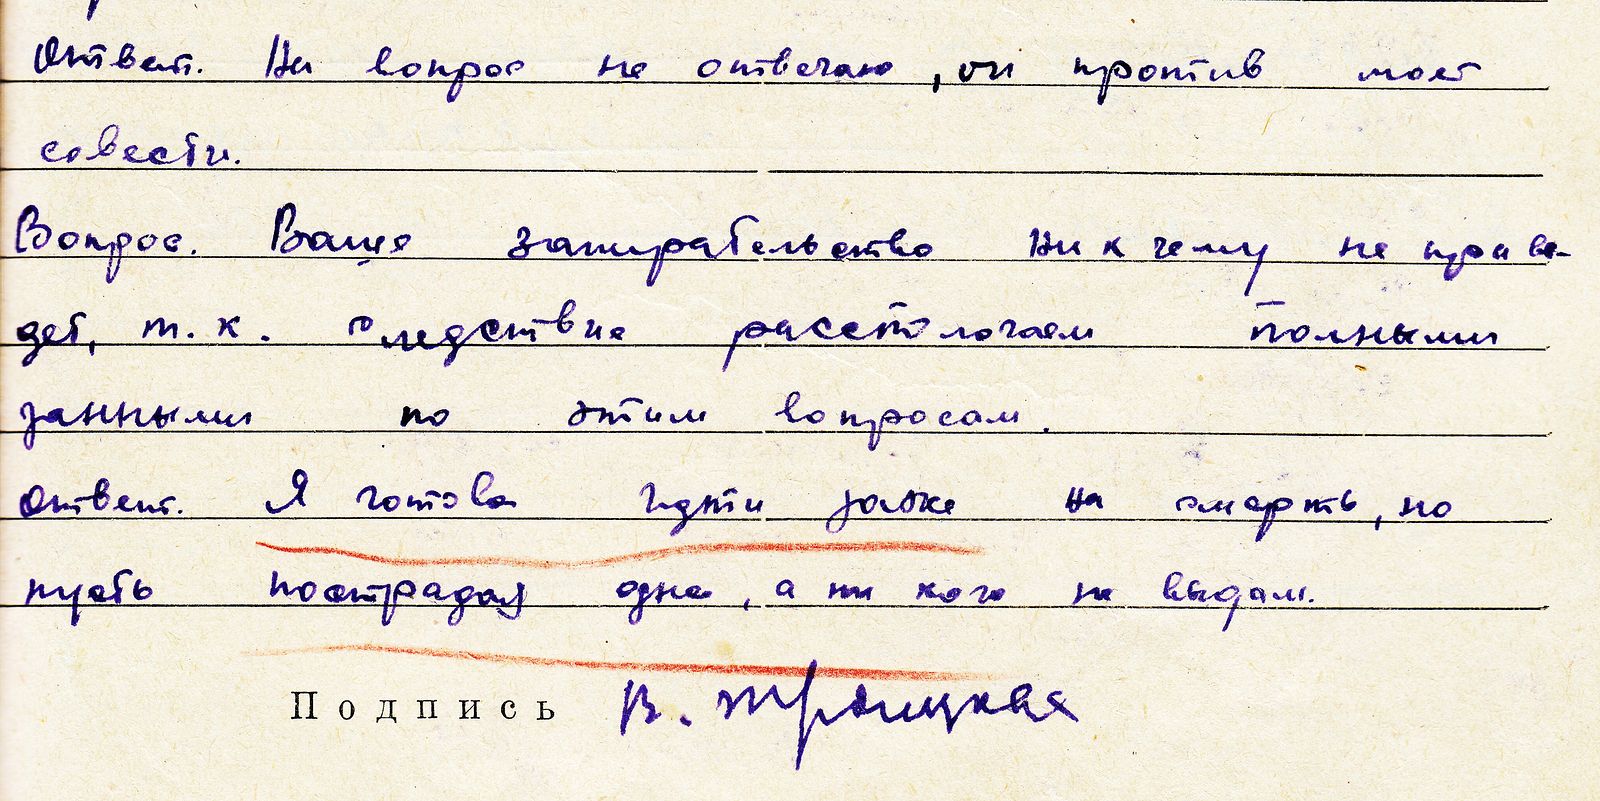 Ответ. На вопрос не отвечаю, он против моей
совести.
Вопрос. Ваше запирательство ни к чему не приве-
дет, т.к. следствие располагаем полными
данными по этим вопросам.
Ответ. Я готова идти даже на смерть, но
пусть пострадаю одна, а ни кого не выдам.
Подпись В. Троицкая